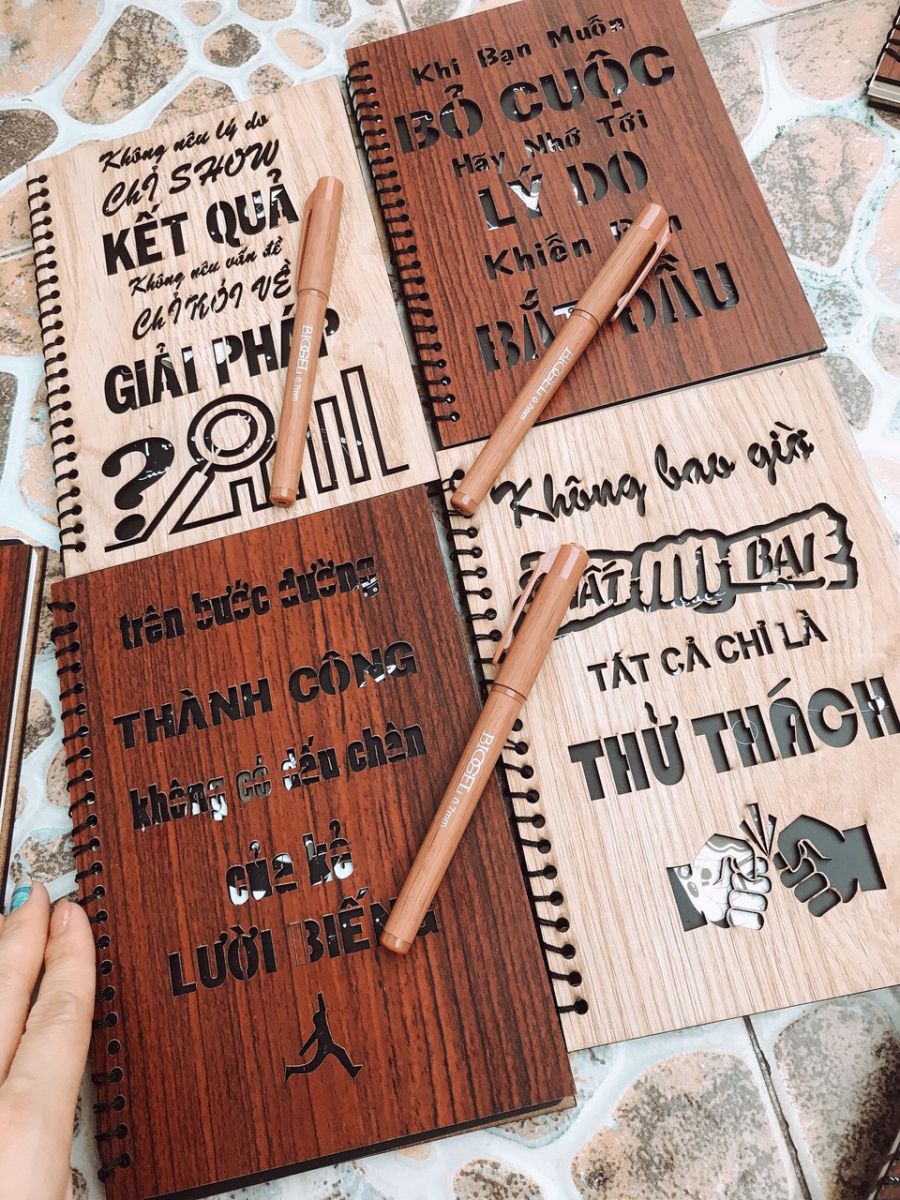 Không nêu lý do
CHỈ SHOW
KẾT QUẢ
Không nêu vấn đề
CHỈ NÓI VỀ
GIẢI PHÁP
?
Khi Bạn Muốn
BỎ CUỘC
Hãy Nhớ Tới
LÝ DO
Khiến Bạn
BẮT ĐẦU
trên bước đường
THÀNH CÔNG
không có dấu chân
của kẻ
LƯỜI BIẾNG
Không bao giờ
THẤT BẠI
TẤT CẢ CHỈ LÀ
THỬ THÁCH
0.7mm
0.7mm
0.7mm